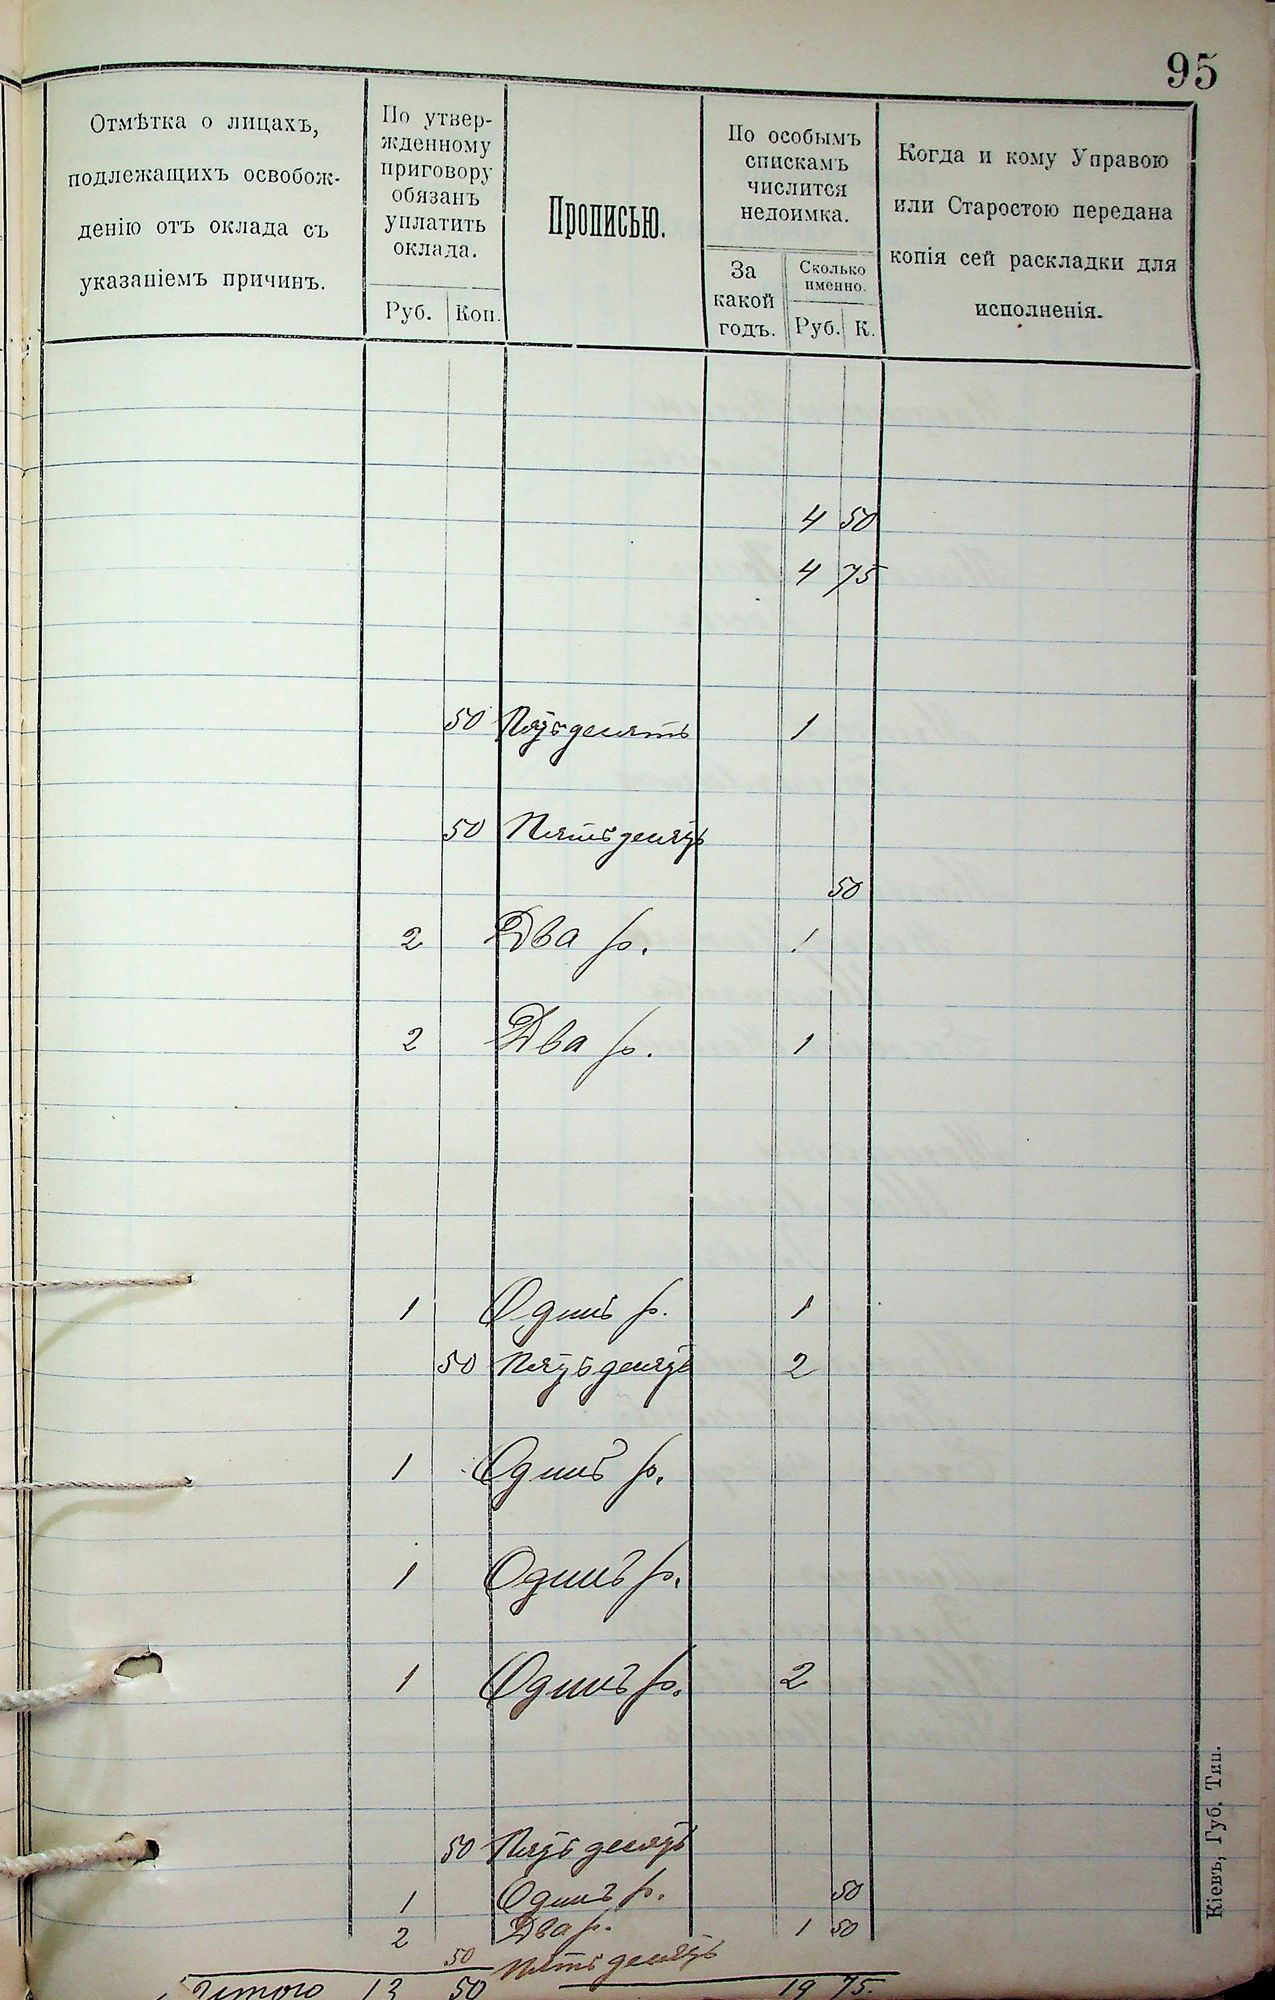 95
Отмѣтка о лицахъ,
подлежащихъ освобож-
денію отъ оклада съ
указаніемъ причинъ.
По утвер-
жденному
приговору
обязанъ
уплатить
оклада.
Руб. Коп.
Прописью.
По особымъ
спискамъ
числится
недоимка.
За
какой
годъ.
Сколько
именно.
Руб. К.
Когда и кому Управою
или Старостою передана
копія сей раскладки для
исполненія.
4 50
4 75
50 Пятьдесятъ 1
50 Пятьдесятъ
50
2 Два р. 1
2 Два р. 1
1 Одинъ р. 1
50 Пятьдесятъ 2
1 Одинъ р.
1 Одинъ р.
1 Одинъ р. 2
50 Пятьдесятъ
1 Одинъ р. 50
2 Два р. 1 50
50 Пятьдесятъ
Итого 13 50 19 75.
Кіевъ, Губ. Тип.